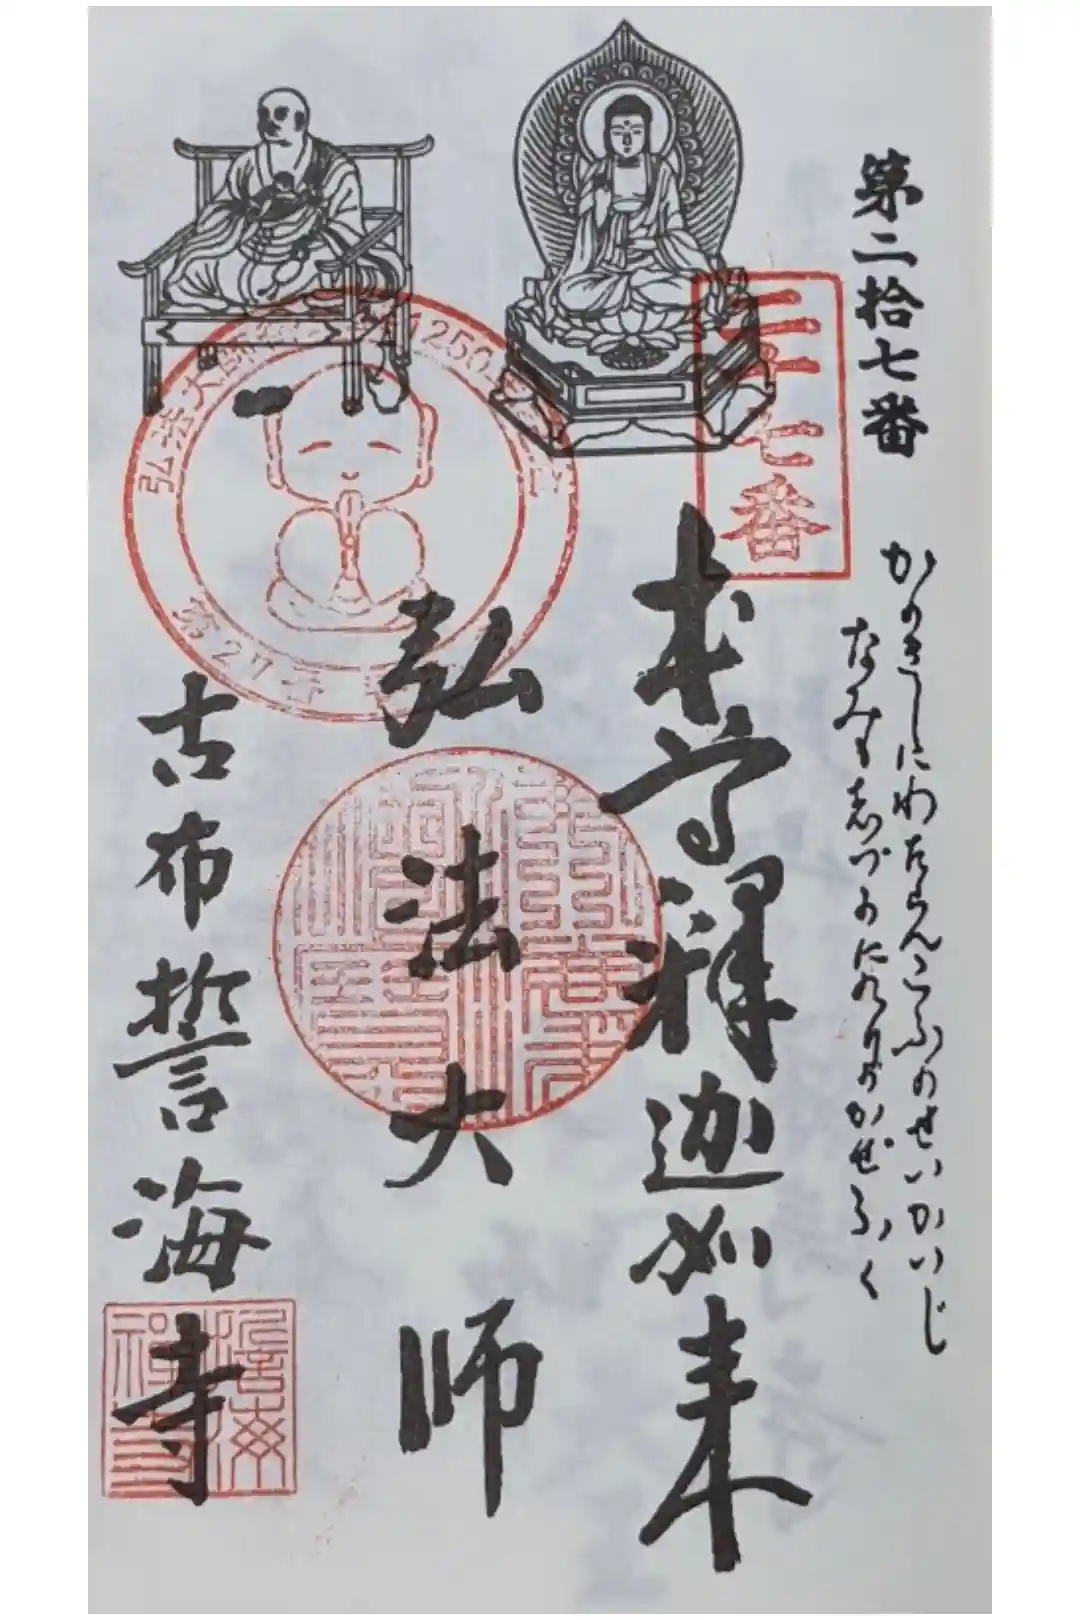 第二拾七番
かのきしにわたらんこふのせいかいじ
なみも志づかにのりのかぜふく
二十七番
本尊釋迦如来
弘法大師
古布誓海寺
弘法大師
1250
第27番
誓海
禅寺